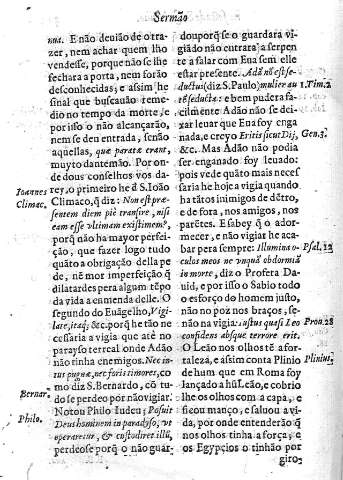 Sermão
nua. E não deuião de o tra-
zer, nem achar quem lho
vendesse, porque não se lhe
fechara a porta, nem forão
desconhecidas; e assim he
sinal que buscauão reme-
dio no tempo da morte, e
por isso o não alcançarão,
nem se deu entrada, senão
aquellas, quæ paratæ erant,
muyto dantemão. Por on-
de dous conselhos vos da-
Ioannes
Climac.
rey, o primeiro he d S. Ioão
Climaco, q̃ diz: Non est præ-
sentem diem piè transire, nisi
eam esse vltimam existimem?.
porq̃ não ha mayor perfei-
ção, que fazer logo tudo
quãto a obrigação della pe
de, nẽ mor imperfeição q̃
dilatardes pera algum tẽpo
da vida a emenda delle. O
segundo do Euãgelho, Vigi-
late, itaq; &c. porq̃ he tão ne
cessaria a vigia que atè no
parayso terreal onde Adão
não tinha enemigos. Nec in-
tus pugnæ, nec foris timores, co
Bernar.
mo diz S. Bernardo, cõ tu-
do se perdeo por não vigiar.
Philo.
Notou Philo Iudeu; Posuit
Deus hominem in paradyso, vt
operaretur, & custodiret illũ,
perdeose porq̃ o não guar-
dou porq̃ se o guardara vi-
giãdo não entrara a serpen
te a falar com Eua sem elle
estar presente. Adã nõ est se-
ductus (diz S. Paulo) mulier au
1. Tim. 2
tẽ seducta: e bem pudera fa-
cilmente Adão não se dei-
zar leuar que Eua foy enga
nada, e creyo Eritis sicut Dij,
Gen. 3.
&c. Mas Adão não podia
ser enganado foy leuado:
pois vede quãto mais neces
saria he hoje a vigia quando
ha tãtos inimigos de dẽtro,
e de fora, nos amigos, nos
parẽtes. E sabey q̃ o ador-
mecer, e não vigiar he aca-
bar pera sempre: Illumina o-
Psal. 12
culos meos ne vnquã obdormiã
in morte, diz o Profeta Da-
uid, e por isso o Sabio todo
o esforço do homem justo,
não no poz nos braços, se-
não na vigia: iustus quasi Leo
Prou. 28
confidens absque terrore erit.
O Leão nos olhos tẽ a for-
taleza, e assim conta Plinio
Plinius.
de hum que em Roma foy
lançado a hũ Leão, e cobrio
lhe os olhos com a capa, e
ficou manço, e saluou a vi-
da, por onde entenderão q̃
nos olhos tinha a força, e
os Egypcios o tinhão por
giro-